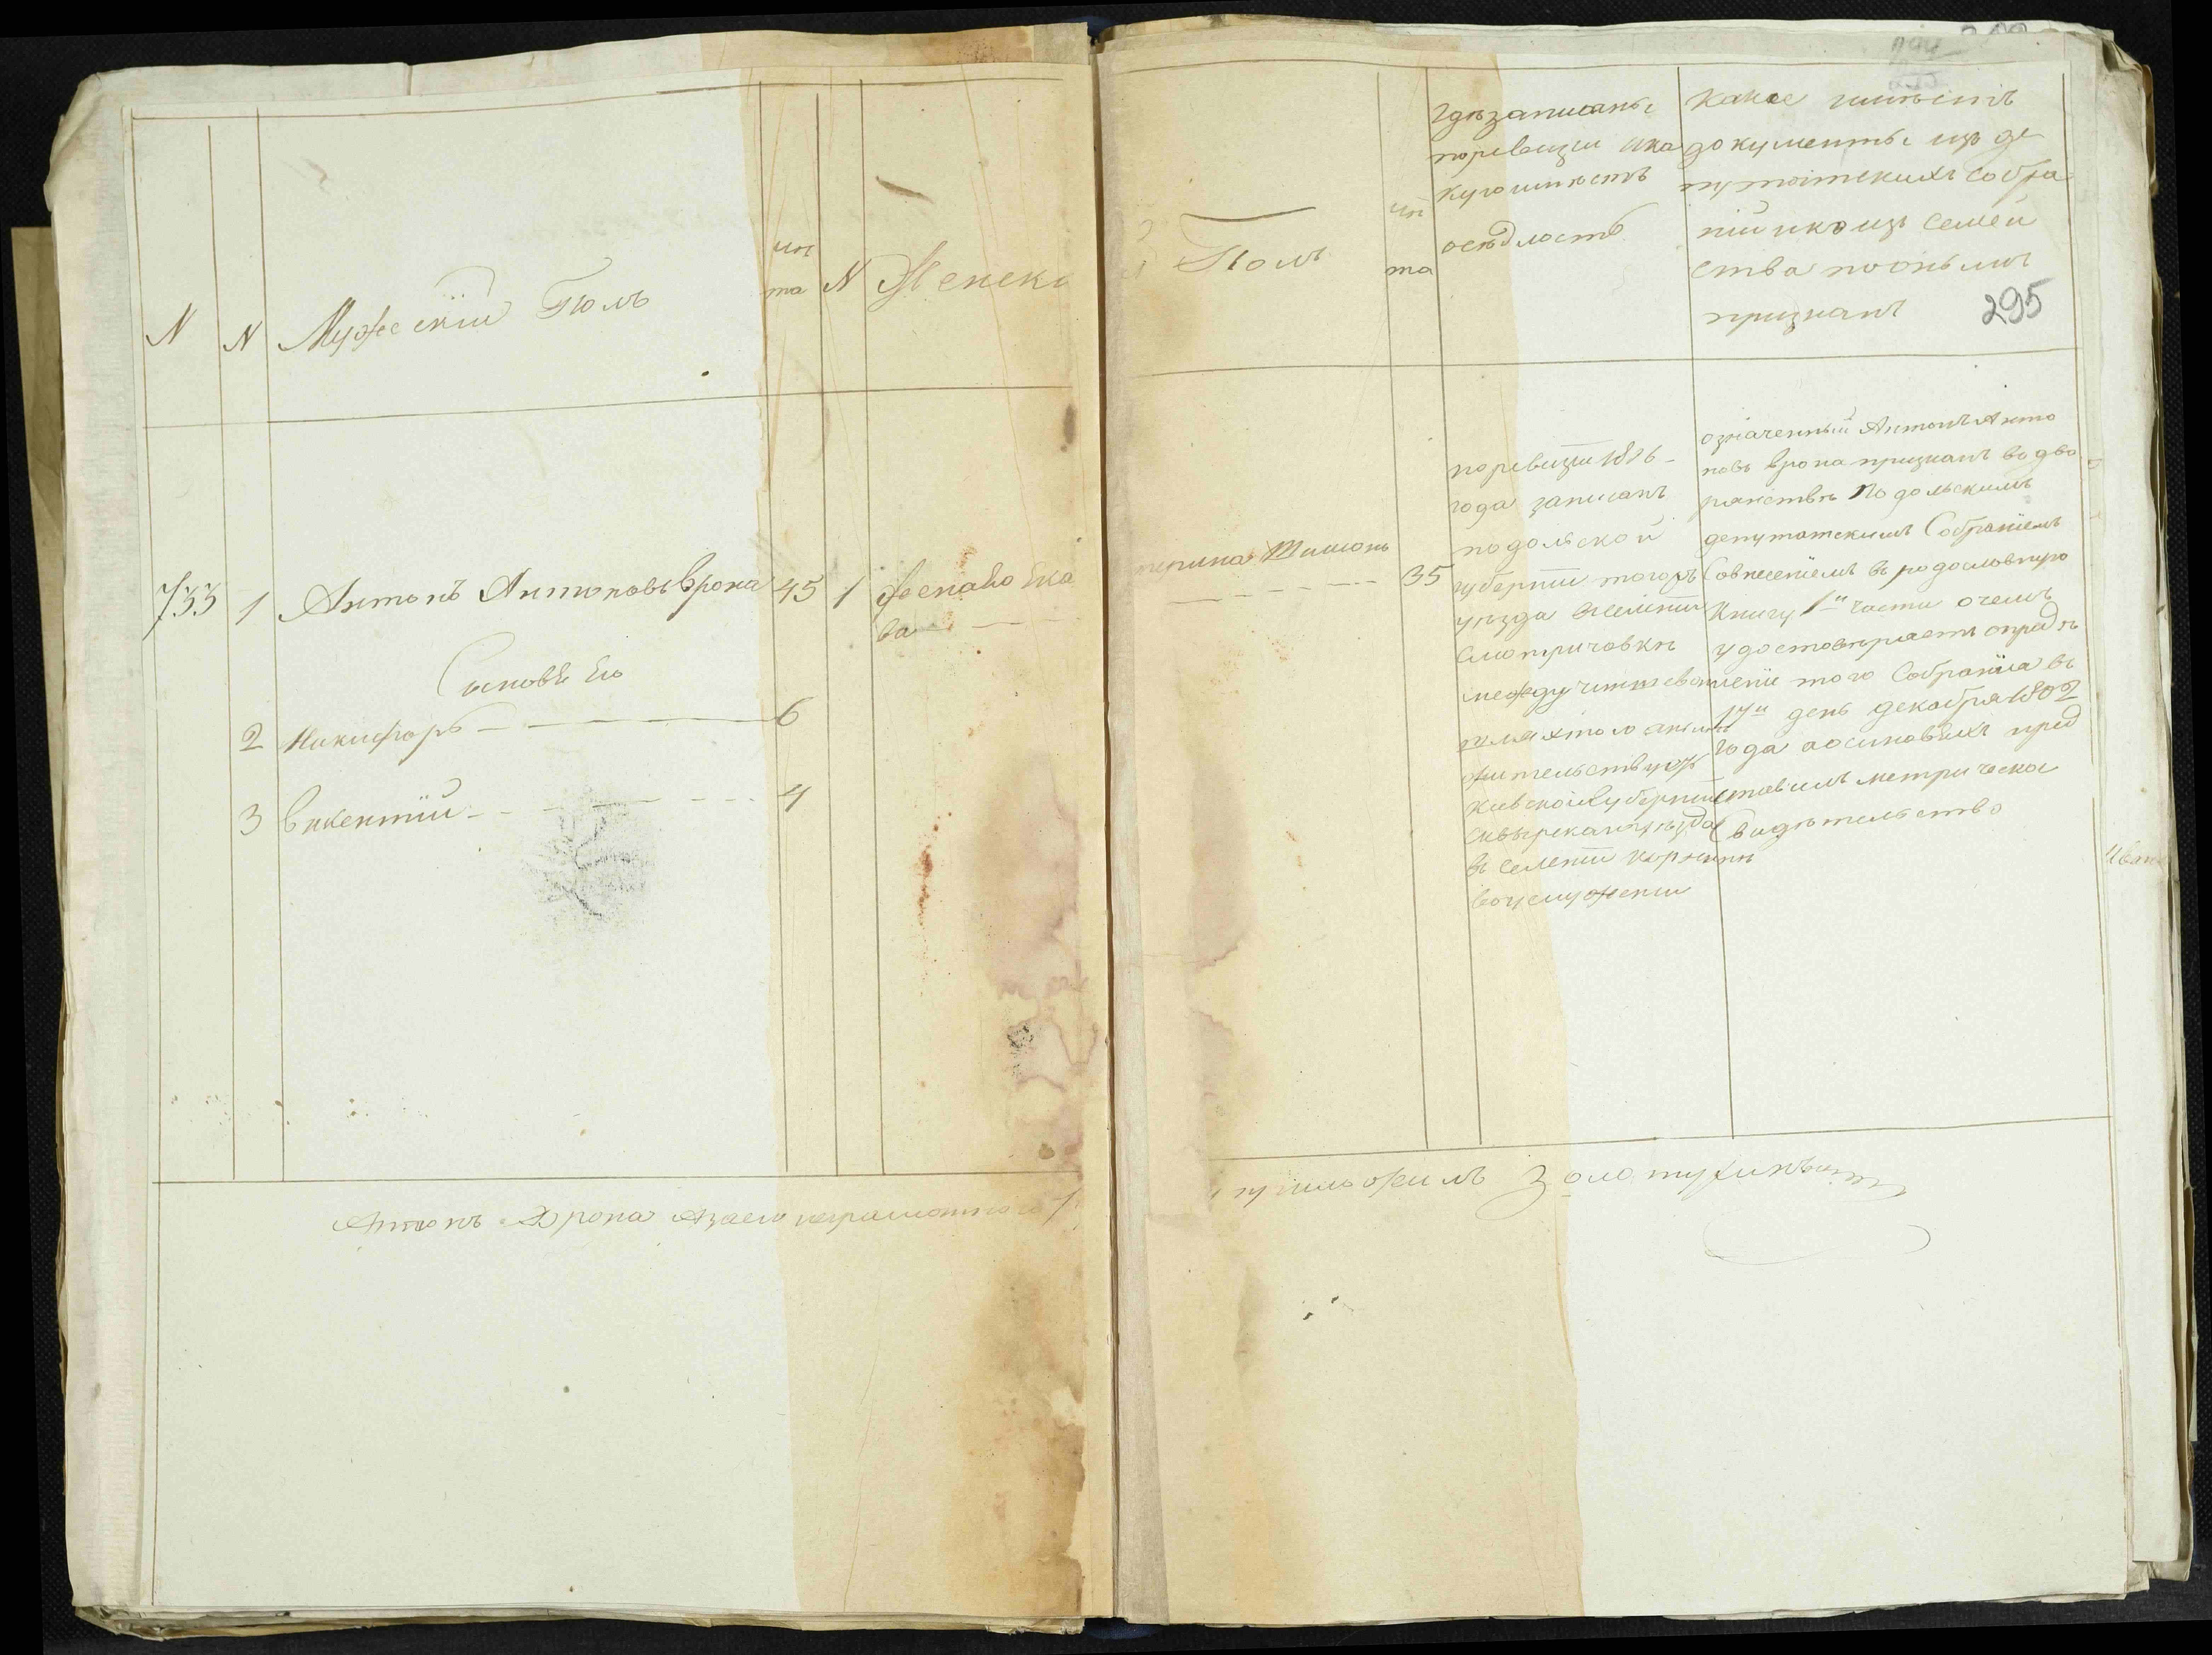 N
N
Мужескiй Полъ
лѣ
та
N
Женскi
Полъ
лѣ
та
гдѣ записаны
поревизiи ика
кую имѣетъ
осѣдлость
какiе имѣетъ
документы изъ де
путатскихъ собра
нiй икто изъ семей
ства по онымъ
признанъ
295
733
1
Антонъ Антоновъ Врона
45
1
Женаево Ека
ва
терина Шимонъ
35
Сыновья Его
2 Никифоръ
6
3 Викентiй
4
поревизiи 1816
года записанъ
подольской
губернiи тогожъ
уезда вселенiи
Смотричовкѣ
между чиншевою
шляхтою а нынѣ
жительствуетъ
Киевской губернiи
Сквирскаго уѣзда
въ селенiи
воуслуженiи
означенный Антонъ Анто
новъ Врона признанъ водво
рянствѣ Подольскимъ
депутатскимъ Собранiемъ
Совнесенiемъ въ родословную
книгу 1й части очемъ
удостовѣряетъ опредѣ
ленiе того Собранiя въ
17й день декабря 1802
года аосыновьяхъ пред
ставилъ метрическое
Свидѣтельство
Антонъ Врона Азаего неграмотного
руку приложилъ Золотухинъ
Иван